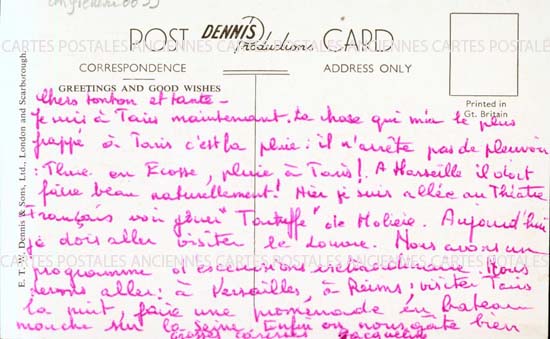 POST DENNIS Productions CARD
CORRESPONDENCE
ADDRESS ONLY
GREETINGS AND GOOD WISHES
Printed in
Gt. Britain
E. T. W. Dennis & Sons, Ltd., London and Scarborough.
Chers tonton et tante -
Je suis à Paris maintenant. La chose qui m'a le plus
frappé à Paris c'est la pluie : il n'arrête pas de pleuvoir
: Pluie en Ecosse, pluie à Paris! A Marseille il doit
faire beau naturellement! Hier je suis allée au Théâtre
Français voir jouer "Tartuffe" de Molière. Aujourd'hui
je dois aller visiter le Louvre. Nous avons un
programme d'excursions extraordinaire. Nous
devons aller : à Versailles, à Reims; visiter Paris
la nuit, faire une promenade en bateau
mouche sur la Seine. Enfin on nous gâte bien
Grosses caresses Jacqueline
CARTES POSTALES ANCIENNES